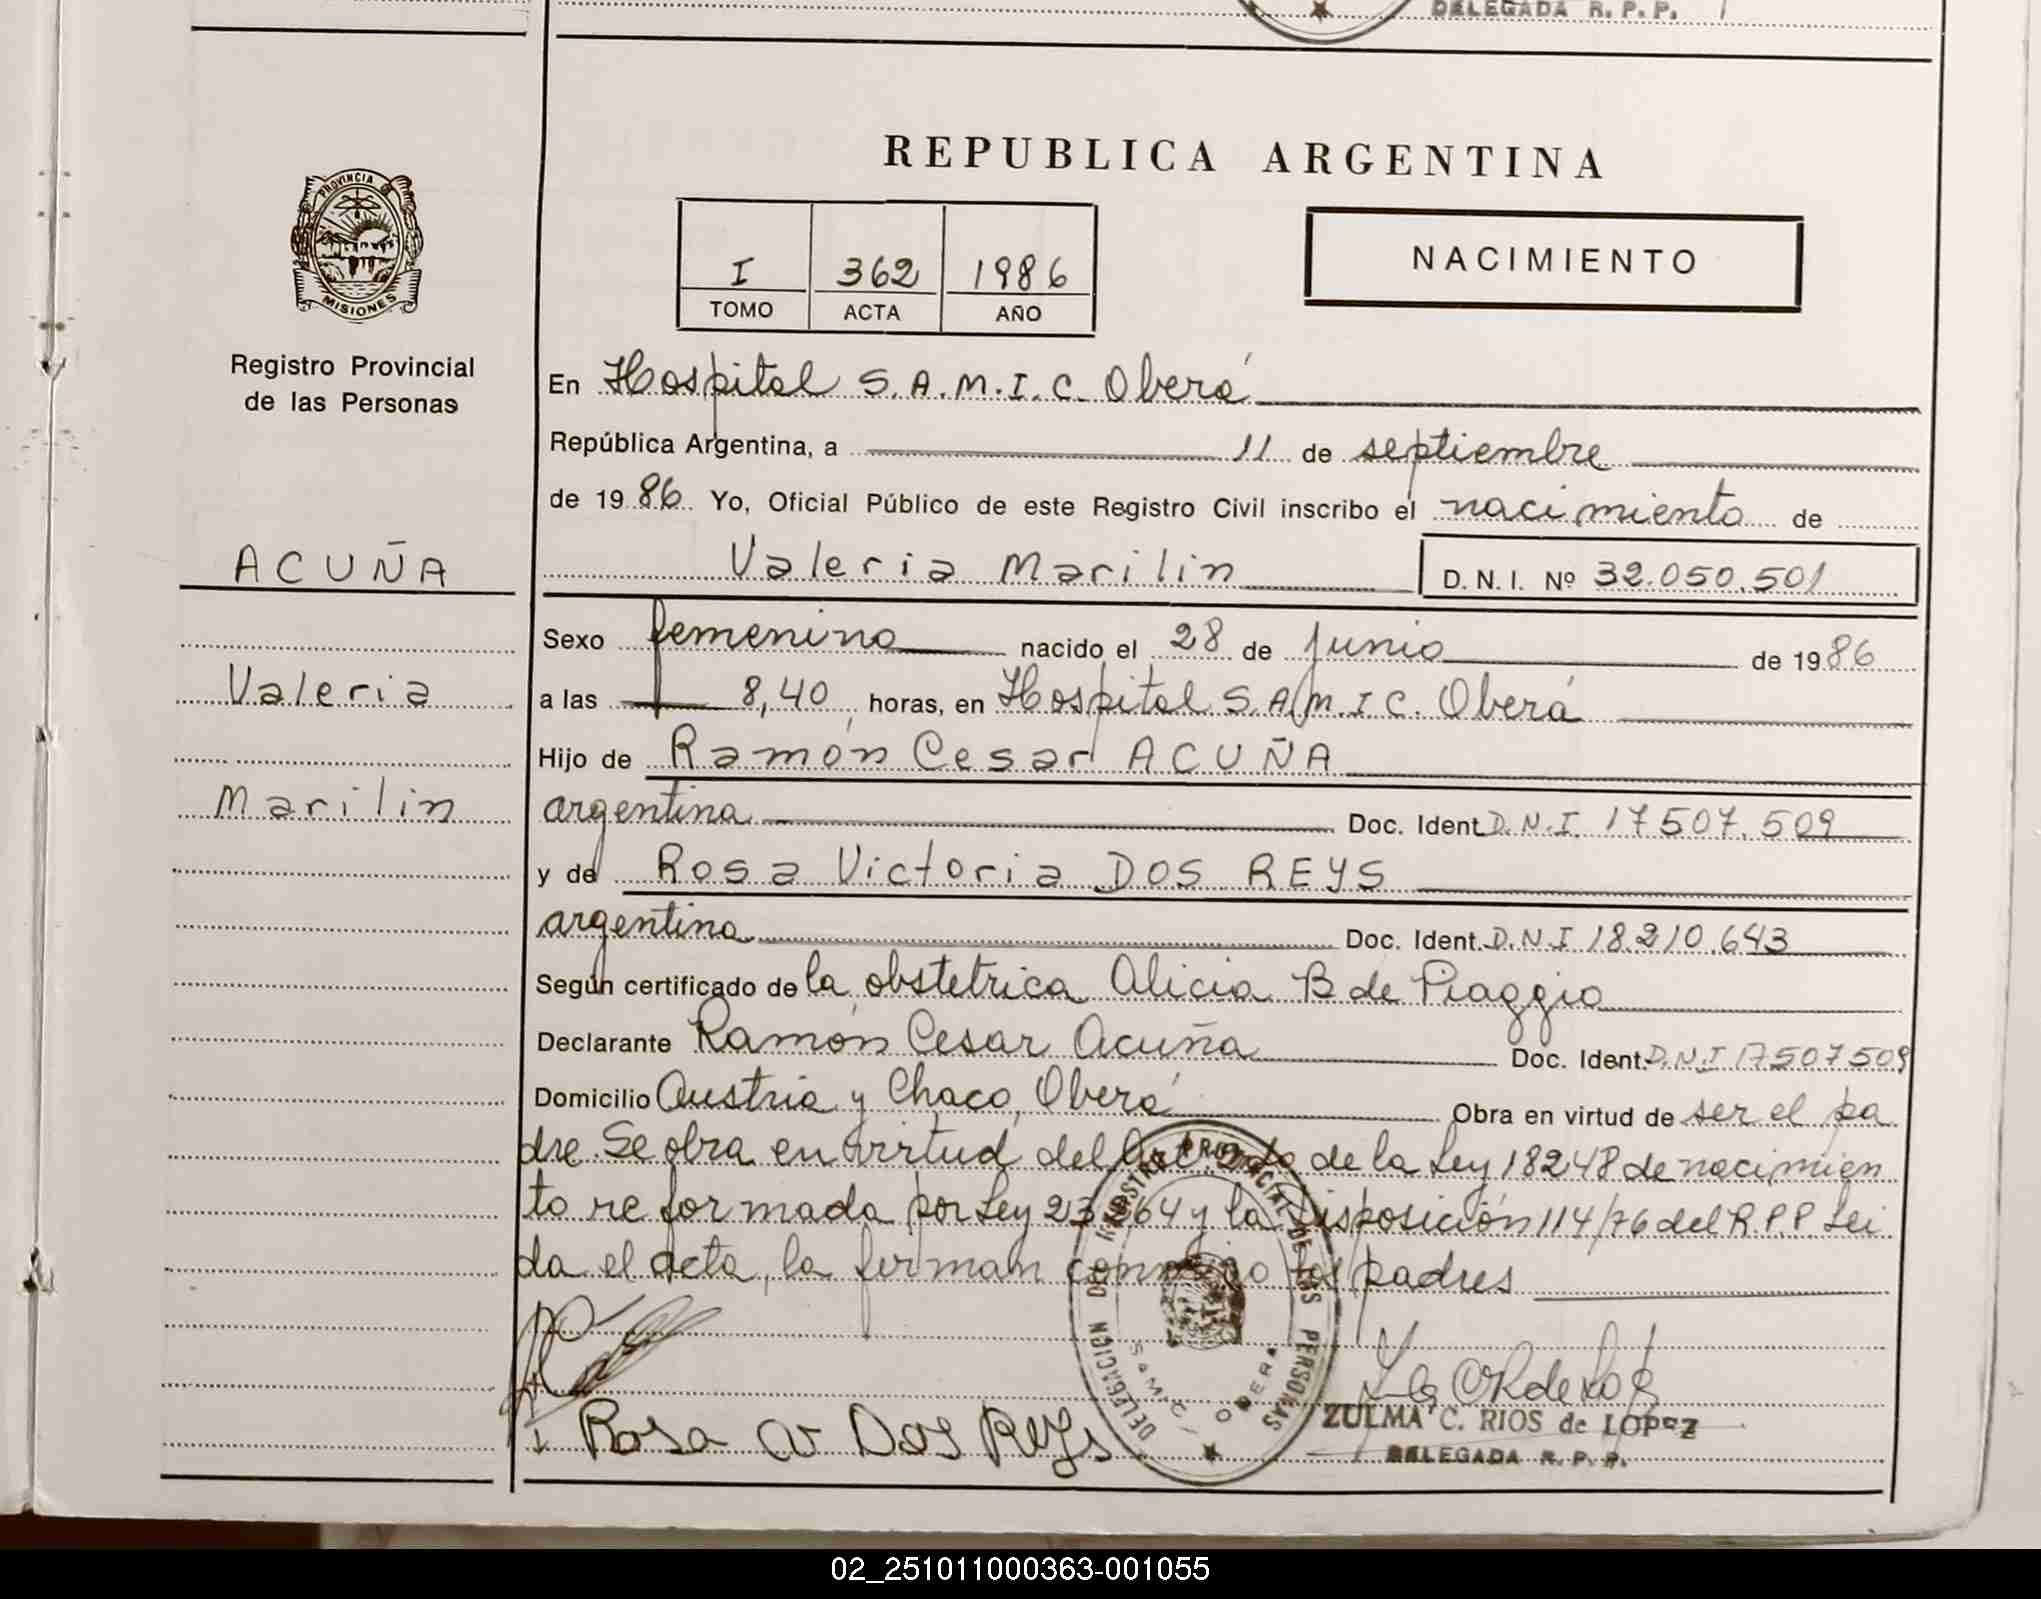 DELEGADA R. P. P.
REPUBLICA ARGENTINA
PROVINCIA DE
MISIONES
Registro Provincial
de las Personas
I 362 1986
TOMO ACTA AÑO
NACIMIENTO
En Hospital S.A.M.I.C. Oberá
República Argentina, a 11 de septiembre
de 1986 Yo, Oficial Público de este Registro Civil inscribo el nacimiento de
ACUÑA
Valeria Marilin D. N. I. Nº 32.050.501
Sexo femenino nacido el 28 de junio de 1986
Valeria
a las 8,40 horas, en Hospital S.A.M.I.C. Oberá
Hijo de Ramón Cesar ACUÑA
Marilin
argentina Doc. Ident. D.N.I 17507.509
y de Rosa Victoria DOS REYS
argentina Doc. Ident. D.N.I 18.210.643
Según certificado de la obstetrica Alicia B de Piaggio
Declarante Ramón Cesar Acuña Doc. Ident. D.N.I 17507509
Domicilio Austria y Chaco, Oberá Obra en virtud de ser el pa
dre. Se obra en virtud del Art. de la Ley 18248 de nacimien
to reformada por Ley 23264 y la Disposición 114/76 del R.P.P. Lei
da el acta, la firman conmigo los padres
DELEGACION DEL REGISTRO PROVINCIAL DE LAS PERSONAS
SAMIC OBERA
Rosa V Dos Reys
ZULMA C. RIOS de LOPEZ
DELEGADA R. P. P.
02_251011000363-001055